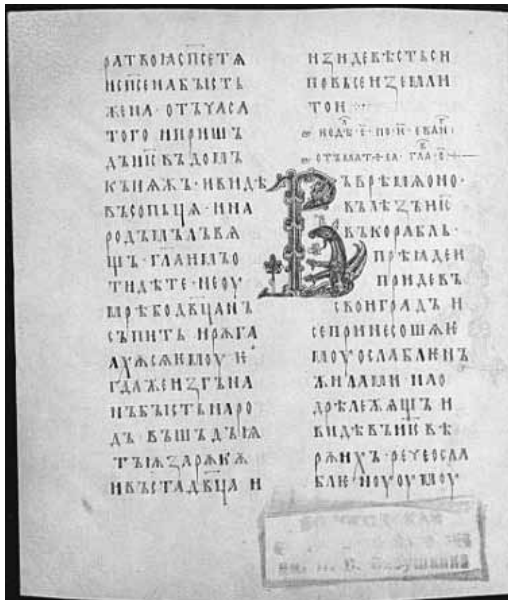 РАТВОꙖСП҃СЕТѦ
ИСП҃СЕНАБЪІСТЬ
ЖЕНА · ОТЪЧАСА
ТОГО ИПРИШЪ
ДЪИС҃ ВЪДОМЪ
КЪНѦЖЪ · ИВИДѢ
ВЪСОПЬЦѦ · ИНА
РОДЪМЪЛЪВѦ
ЩЬ · ГЛ҃АИМЪО
ТИДѢТЕ · НЕОУ
МРѢБОДВ҃ЦАНЪ
СЪПИТЬ ИРѪГА
АХѪСѦѤМОУ Ѥ
ГДАЖЕИЗГЪНА
НЪБЪІСТЬНАРО
ДЪ · ВЪШЪДЪꙖ
ТЪѬЗАРѪКѪ
ИВЪСТАДВ҃ЦА И
ИЗИДЕВѢСТЬСИ
ПОВЬСЕИЗЕМЛИ
ТОИ
ВЪВРѢМѦОНО ·
ВЪЛѢЗЪИС҃
ВЪКОРАБЛЬ ·
ПРѢѢДЕИ
ПРИДЕВЪ
СВОИГРАДЪ И
СЕПРИНЕСОШѦѤ
МОУОСЛАБЛЕНЪ
ЖИЛАМИ НАО
ДРѢЛЕЖѦЩЬ И
ВИДѢВЪИС҃ВѢ
РѪИХЪ · РЕЧЕОСЛА
БЛЕНОУОУМОУ